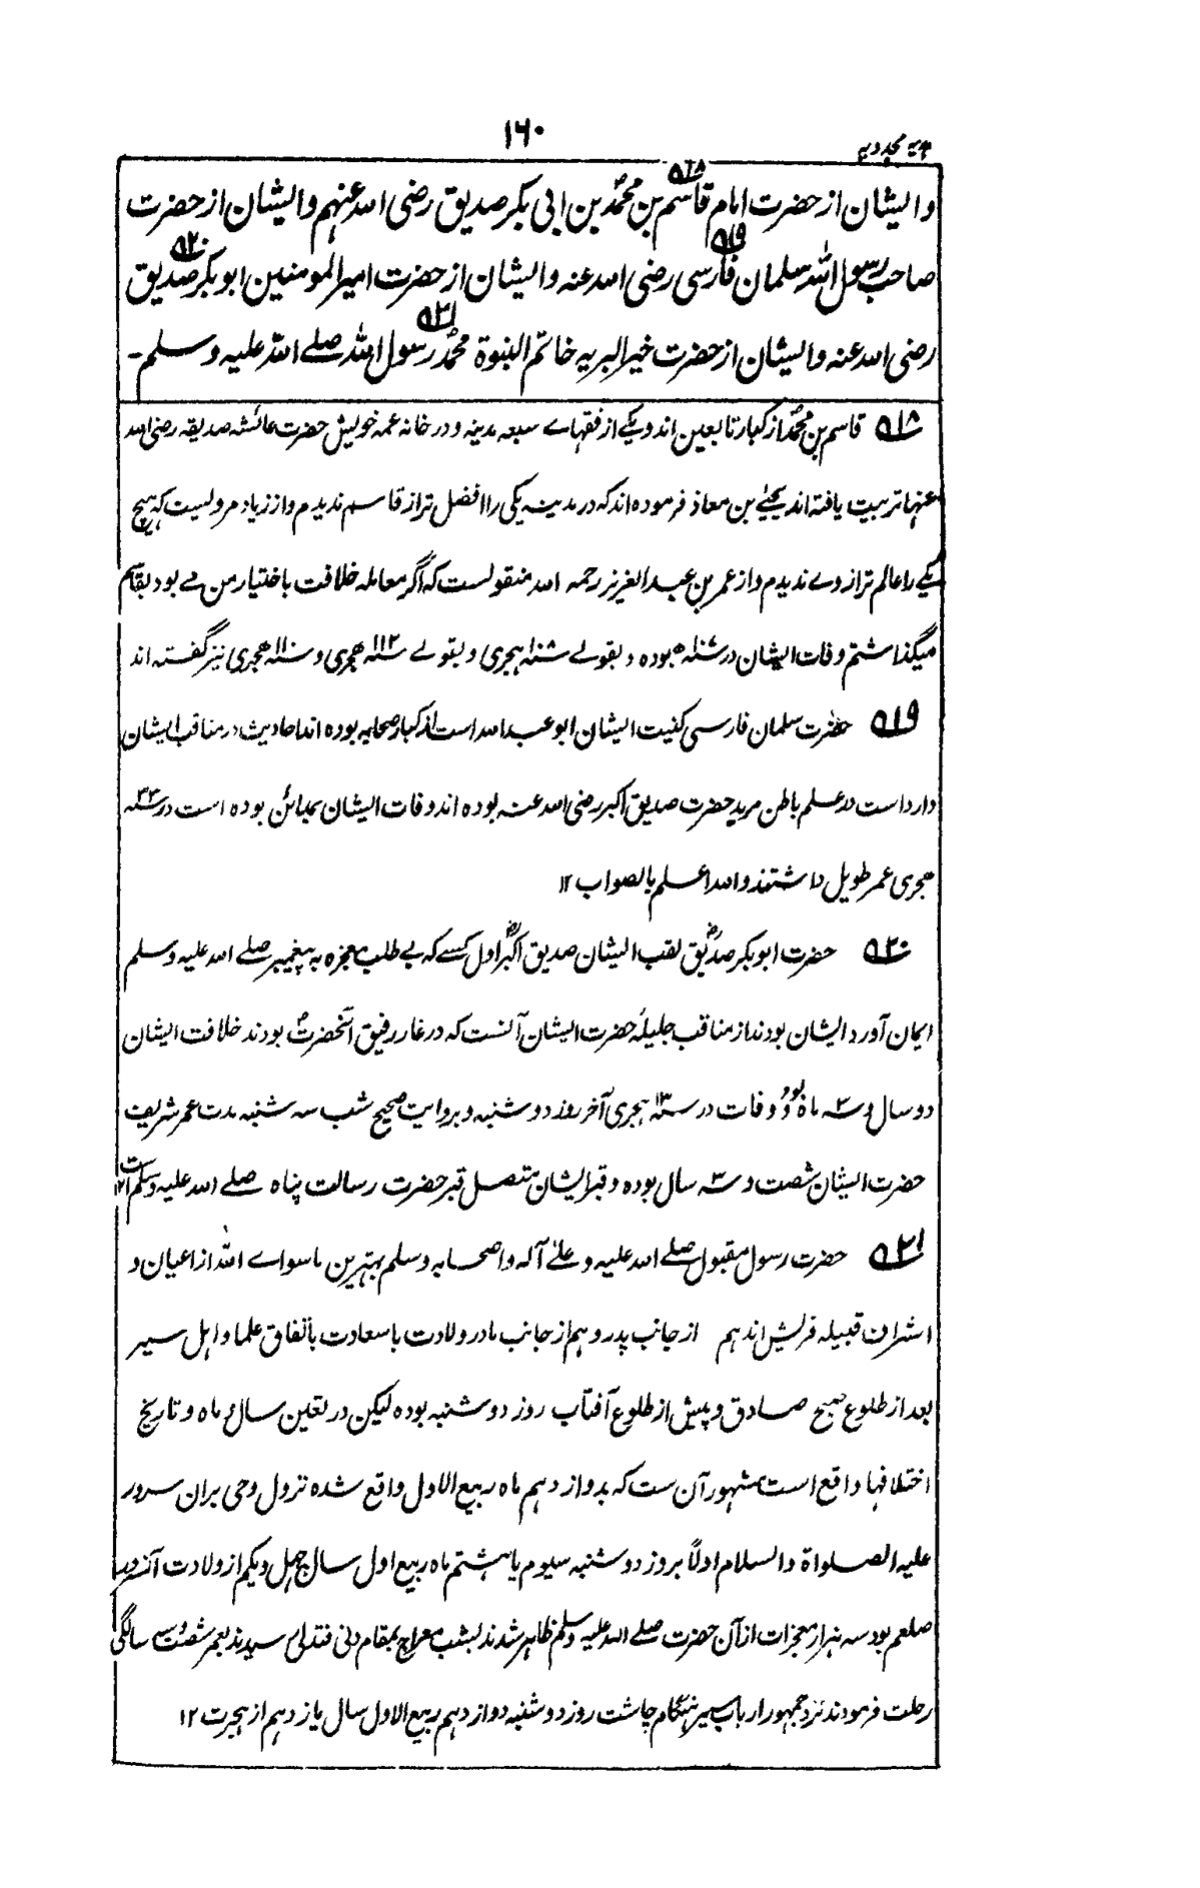 ۱۶۰
ہدیہ مجددیہ
وایشان از حضرت امام قاسم ۵۱۸ بن محمدؓ بن ابی بکر صدیق رضی اللہ عنہم وایشان از حضرت
صاحب رسول اللہ سلمان فارسی ۵۱۹ رضی اللہ عنہ وایشان از حضرت امیرالمومنین ابوبکر صدیق ۵۲۰
رضی اللہ عنہ وایشان از حضرت خیرالبریہ خاتم النبوۃ محمدؐ ۵۲۱ رسول اللہ صلے اللہ علیہ وسلم۔
۵۱۸ قاسم بن محمدؓ از کبار تابعین اند و یکے از فقہاے سبعہ مدینہ و در خانہ عمہ خویش حضرت عائشہ صدیقہ رضی اللہ
عنہا تربیت یافتہ اند یحییٰ بن معاذ فرمودہ اند کہ در مدینہ یکی را افضل تر از قاسم ندیدم و از زیاد مرویست کہ ہیچ
یکے را عالم تر از وے ندیدم و از عمر بن عبدالعزیز رحمہ اللہ منقولست کہ اگر معاملہ خلافت باختیار من مے بود بقاسم
میگذاشتم وفات ایشان در بودہ و بقولے ہجری و بقولے ۱۱۲ ہجری و ہجری نیز گفتہ اند
۵۱۹ حضرت سلمان فارسی کنیت ایشان ابو عبداللہ است از کبار صحابہ بودہ اند احادیث در مناقب ایشان
وارد است در علم باطن مرید حضرت صدیق اکبر رضی اللہ عنہ بودہ اند وفات ایشان بمدائن بودہ است در ۳۳سنہ
ہجری عمر طویل داشتند واللہ اعلم بالصواب ۱۲
۵۲۰ حضرت ابوبکر صدیقؓ لقب ایشان صدیق اکبرؓ اول کسے کہ بے طلب معجزہ بہ پیغمبر صلے اللہ علیہ وسلم
ایمان آورد ایشان بودند از مناقب جلیلہ حضرت ایشان آنست کہ در غار رفیق آنحضرتؐ بودند خلافت ایشان
دو سال و سہ ماہ بود و وفات در ۱۳سنہ ہجری آخر روز دوشنبہ و بروایت صحیح شب سہ شنبہ مدت عمر شریف
حضرت ایشان شصت و سہ سال بودہ و قبر ایشان متصل قبر حضرت رسالت پناہ صلے اللہ علیہ وسلم است ۱۲
۵۲۱ حضرت رسول مقبول صلے اللہ علیہ و علیٰ آلہ و اصحابہ وسلم بہترین ماسواے اللہ از اعیان و
اشراف قبیلہ قریش اند ہم از جانب پدر و ہم از جانب مادر ولادت باسعادت باتفاق علما و اہل سیر
بعد از طلوع صبح صادق و پیش از طلوع آفتاب روز دوشنبہ بودہ لیکن در تعین سال و ماہ و تاریخ
اختلافہا واقع است مشہور آن ست کہ بدوازدہم ماہ ربیع الاول واقع شدہ نزول وحی بران سرور
علیہ الصلواۃ والسلام اولاً بروز دوشنبہ سیوم یا ہشتم ماہ ربیع اول سال چہل و یکم از ولادت آنسرور
صلعم بود سہ ہزار معجزات از آن حضرت صلے اللہ علیہ وسلم ظاہر شدند بشب معراج بمقام دنی فتدلی رسیدند بعمر شصت و سہ سالگی
رحلت فرمودند نزد جمہور ارباب سیر ہنگام چاشت روز دوشنبہ دوازدہم ربیع الاول سال یازدہم از ہجرت ۱۲